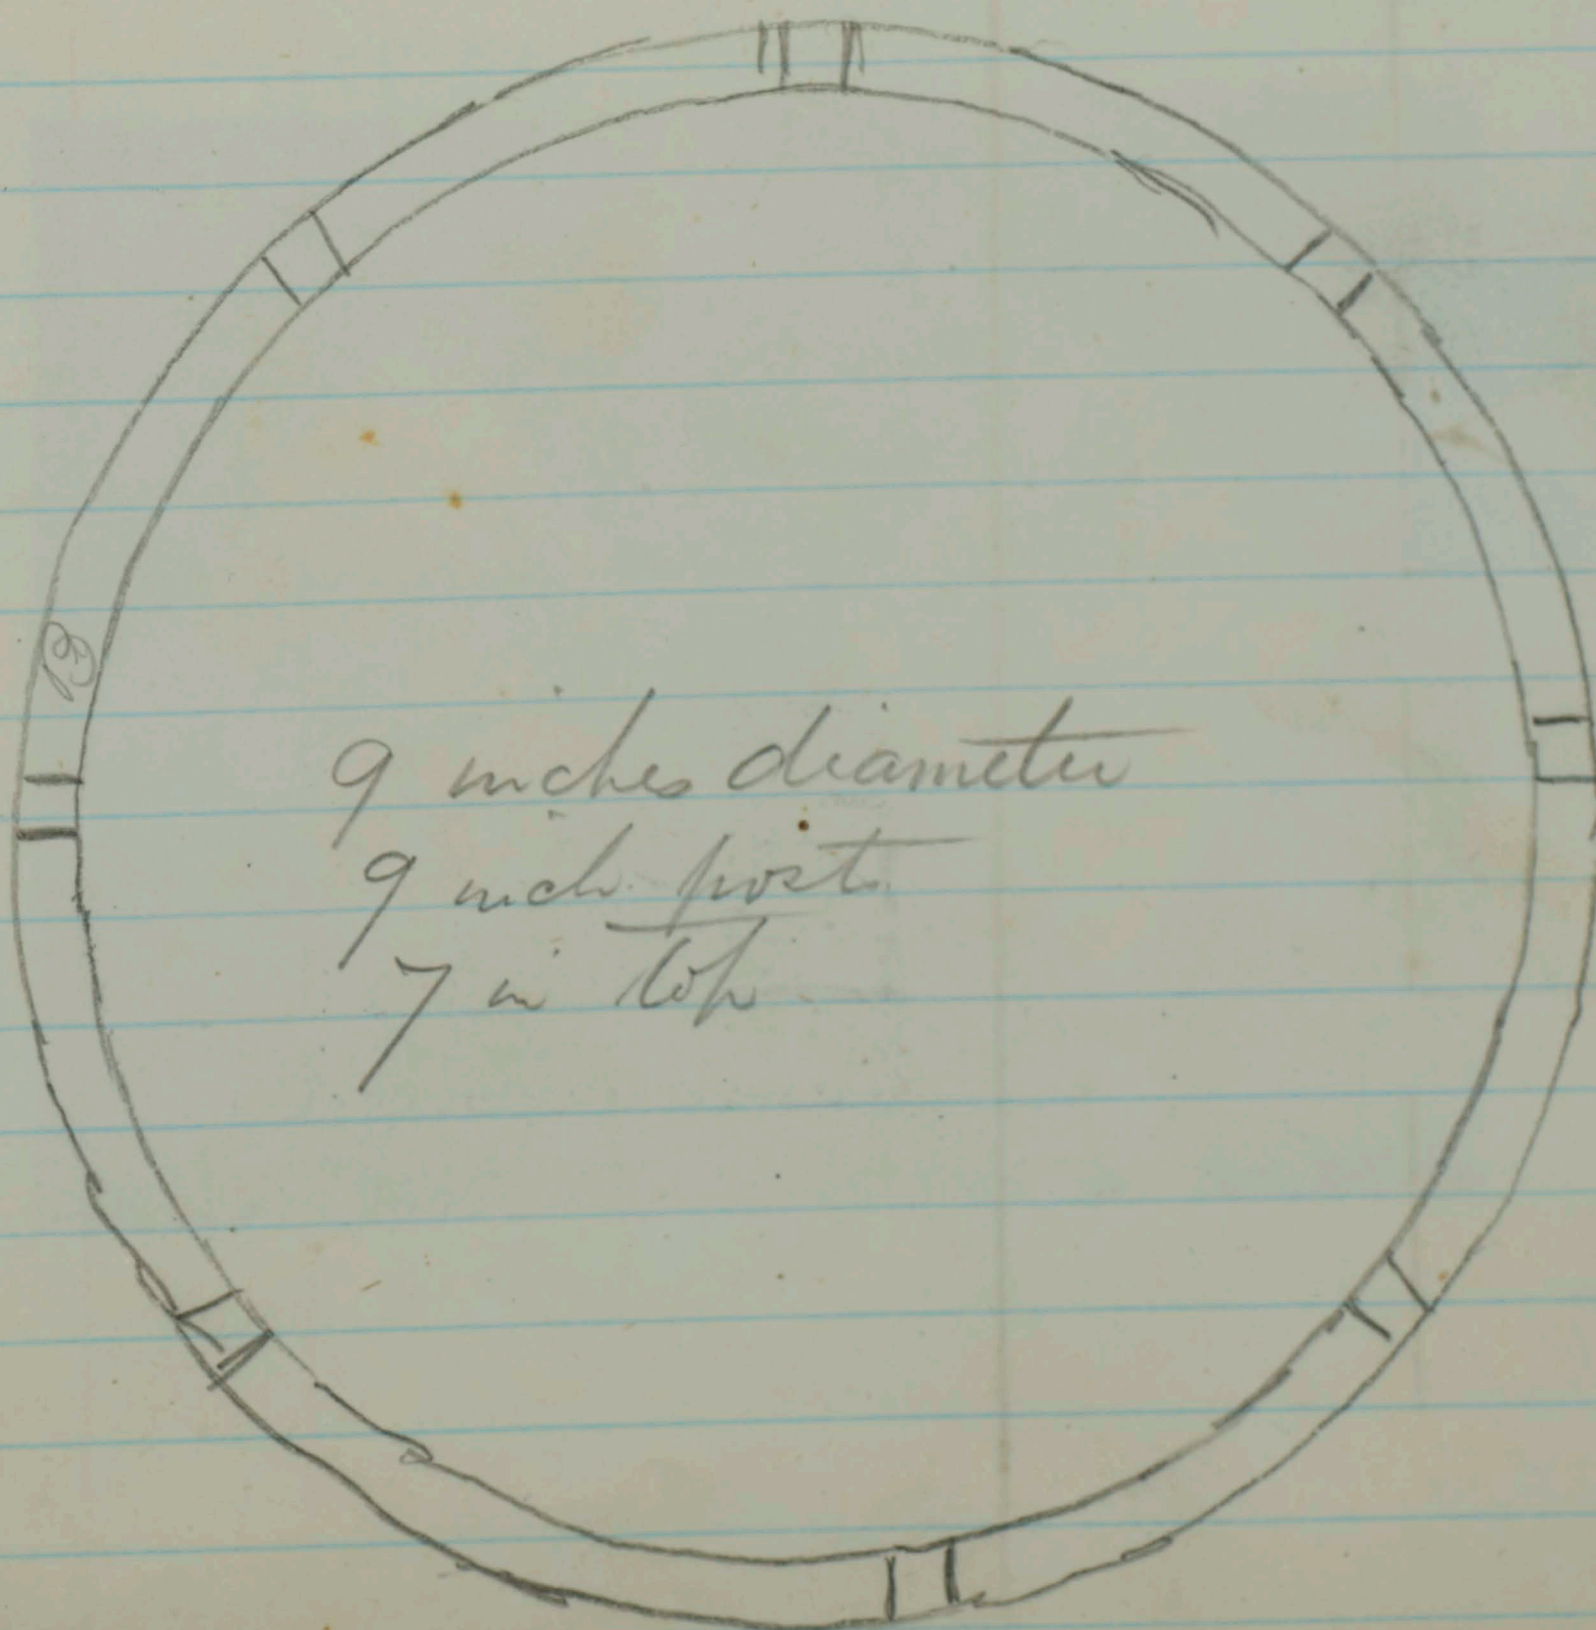 13
9 inches diameter
9 inch post
7 in top